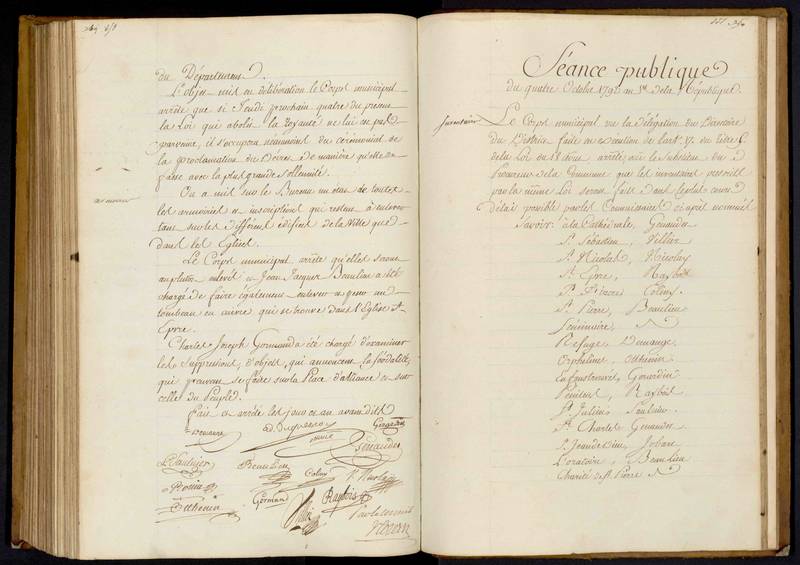 du Département.
L'objet mis en délibération le Corps municipal
arrête que si Jeudi prochain quatre du présent
la Loi qui abolit la royauté ne lui est pas
parvenue, il s'occupera néanmoins du cérémonial de
la proclamation du Décret de manière qu'elle se
fasse avec la plus grande solennité.
On a mis sur le Bureau un état de toutes
armoiries
les armoiries et inscriptions qui restent à enlever
tant sur les différents édifices de la Ville que
dans les Eglises.
Le Corps municipal arrête qu'elles seront
au plutôt enlevées et Jean Jacques Beaulieu a été
chargé de faire également enlever et peser un
tombeau en cuivre qui se trouve dans l'Eglise St
Epvre.
Charles Joseph Gormand a été chargé d'examiner
les suppressions d'objets, qui annoncent la féodalité,
qui peuvent se faire sur la Place d'alliance et sur
celle du Peuple.
Fait et arrêté les jour et an avant dits
Genaudet
Beaulieu
Colny
Othenin
Gormand
Raybois
Séance publique
du quatre Octobre 1792 an 1er de la République.
Inventaires
Le Corps municipal vu la délégation du Directoire
du District faite en exécution de l'art. V. du titre
de la Loi du arrête, ouï le substitut du
Procureur de la Commune que les inventaires prescrits
par la même Loi seront faits dans le plus court
délai possible par les Commissaires ci après nommés
Savoir: à la Cathédrale, Genaudet
St. Sébastien, Villier
St. Nicolas, Nicolas
St. Epvre, Raybois
St. Fiacre Colny
St. Pierre, Beaulieu
Séminaire,
Refuge, Demange
Orphelines, Othenin
Enfants trouvés, Girardin
Pénitents, Raybois
St. Julien Saulnier
St. Charles Genaudet
St. Jean de Dieu, Jobart
L'oratoire, Beaulieu
Charité de St. Pierre